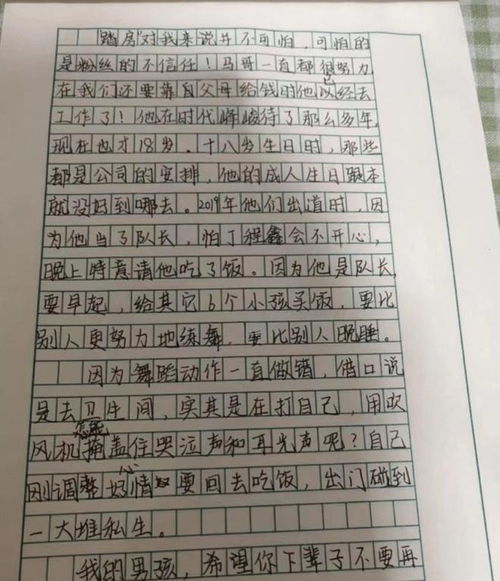 “踏房”对我来说并不可怕，可怕的
是粉丝的不信任！马哥一直都很努力
在我们还要靠自父母给钱时他以经去
工作了！他在时代峰峻待了那么多年，
现在也才18岁。十八岁生日时，那些
都是公司的安排，他的成人生日跟本
就没好到哪去。2019年他们出道时，因
为他当了队长，怕丁程鑫会不开心，
晚上特意请他吃了饭。因为他是队长，
要早起，给其它6个小孩买饭，要比
别人更努力地练舞，要比别人晚睡。
因为舞蹈动作一直做错，借口说
是去卫生间，实其是在打自己，用吹
风机怎能掩盖住哭泣声和耳光声呢？自己
刚调整好心情要回去吃饭，出门碰到
一大堆私生。
我的男孩，希望你下辈子不要再